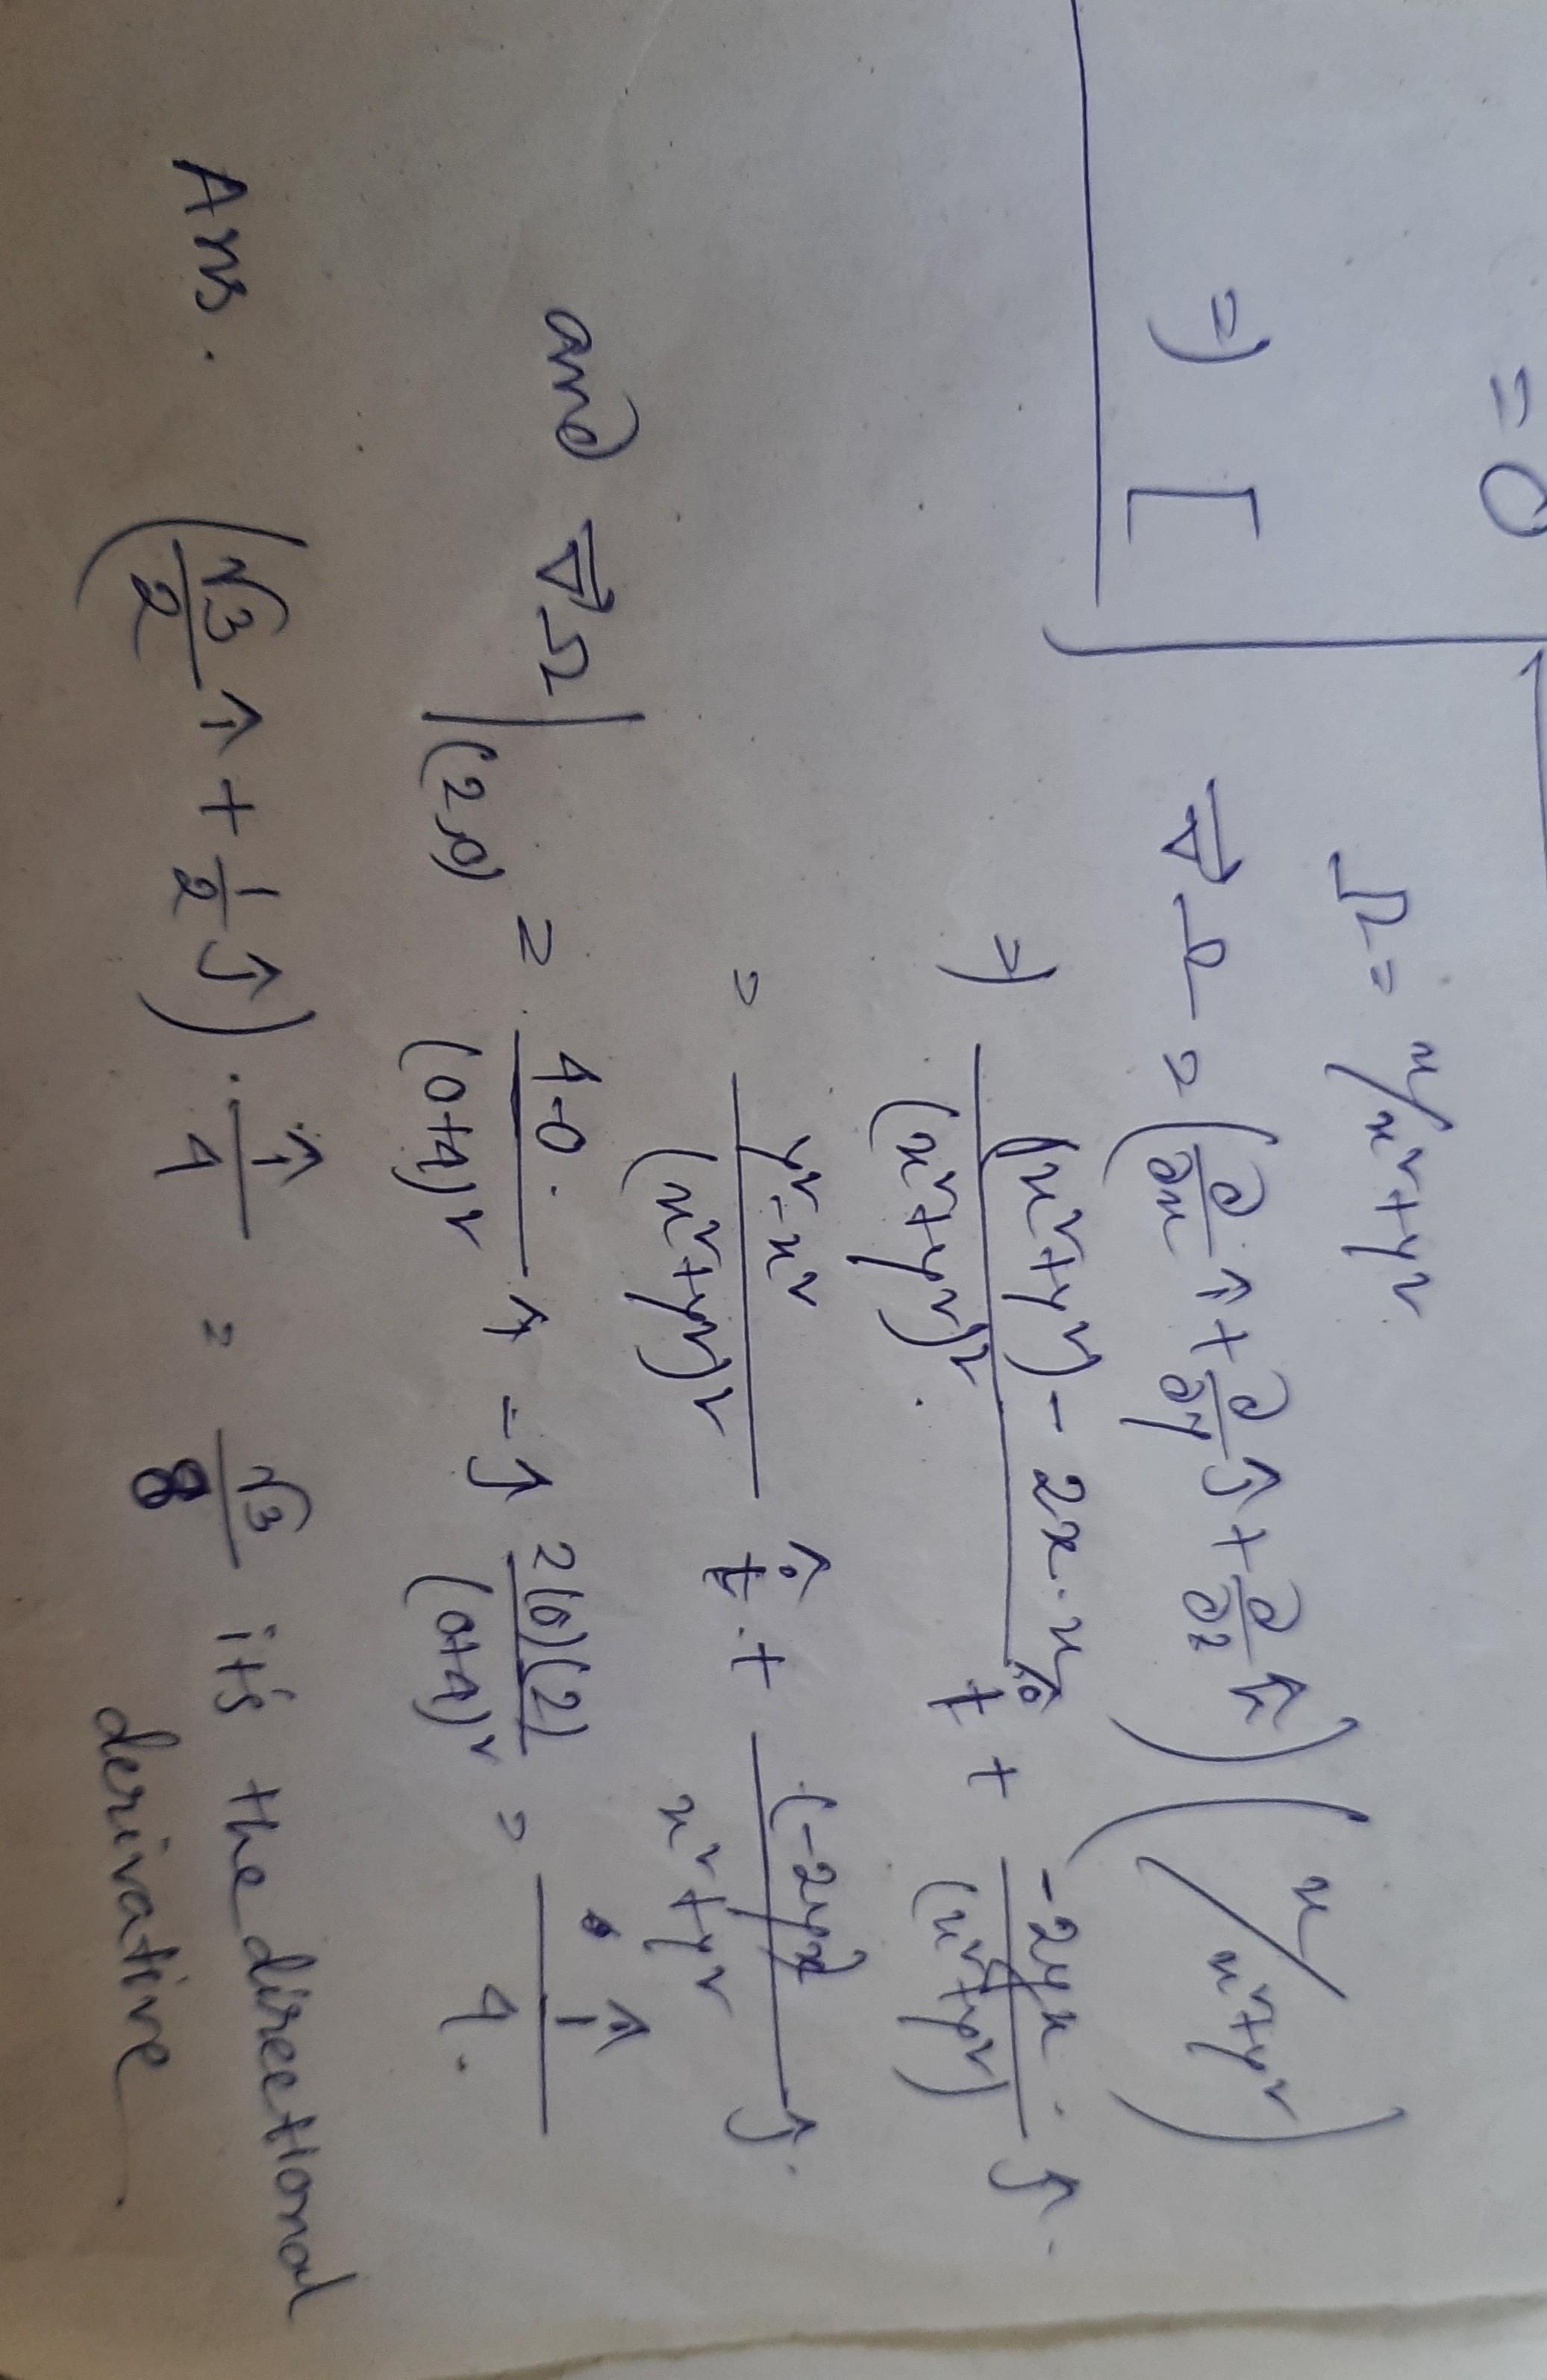 = 0
⇒ [
Ω = x/x²+y²
∇Ω = (∂/∂x î + ∂/∂y ĵ + ∂/∂z k̂) (x/x²+y²)
⇒ (x²+y²) - 2x·x/(x²+y²)² î + -2yx/(x²+y²) ĵ.
= y²-x²/(x²+y²)² î + (-2yx)/x²+y² ĵ.
and ∇Ω|(2,0) = 4-0/(0+4)² î - ĵ 2(0)(2)/(0+4)² = î/4.
Ans. (√3/2 î + 1/2 ĵ) · î/4 = √3/8 it's the directional
derivative.